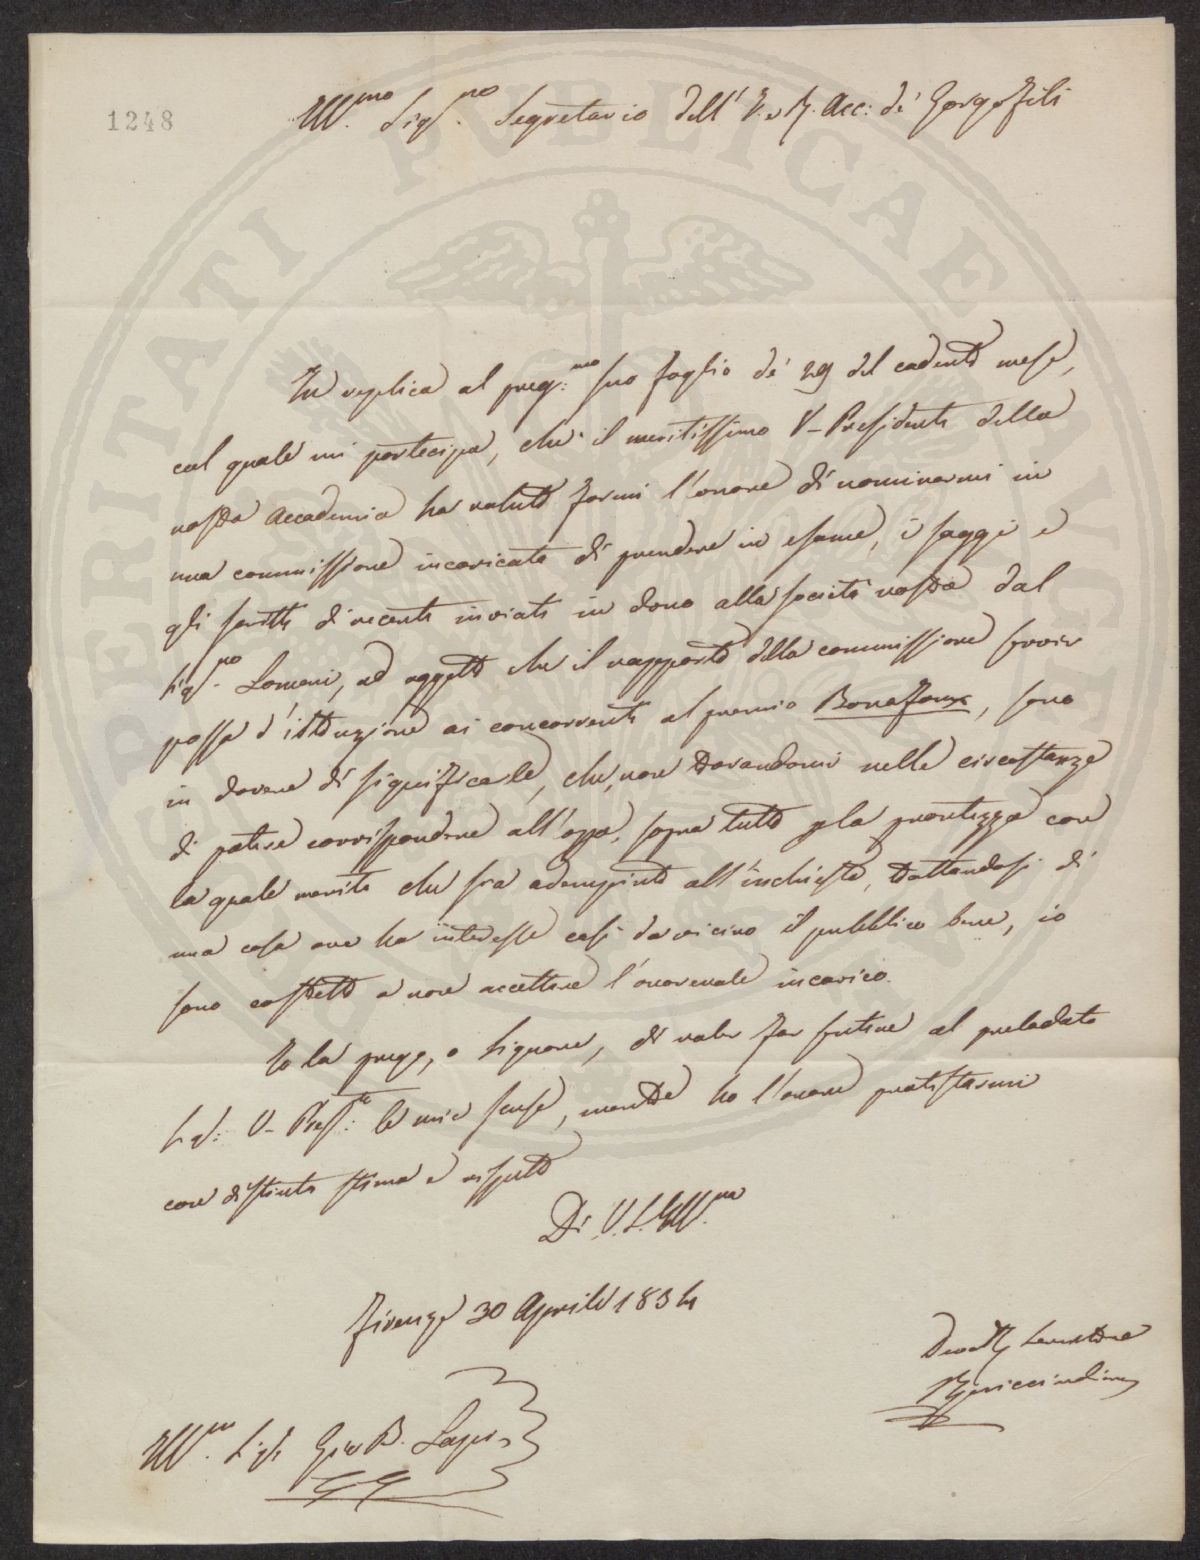 1248
Ill.mo Sig.re Segretario dell'I. e R. Acc: de' Georgofili
In replica al preg:mo suo foglio de' 29 del cadente mese,
col quale mi partecipa, che il meritissimo V-Presidente della
nostra Accademia ha voluto farmi l'onore di nominarmi in
una commissione incaricata di prendere in esame, i saggi e
gli scritti di recente inviati in dono alla società nostra dal
Sig.re Lomeni, ad oggetto che il rapporto della commissione servir
possa d'istruzione ai concorrenti al premio Bonafoux, sono
in dovere di significarle, che, non trovandomi nelle circostanze
di potere corrispondere all'opra, sopra tutto p la prontezza con
la quale merita che sia adempiuto all'inchiesta, trattandosi di
una cosa ove ha interesse così da vicino il pubblico bene, io
sono costretto a non accettare l'onorevole incarico.
Io la prego, o Signore, di voler far sentire al prelodato
Sig: V- Pres:te le mie scuse, mentre ho l'onore protestarmi
con distinta stima e rispetto
Di V. S. Ill.ma
Firenze 30 Aprile 1834
Dev Servitore
Ill.mo Sig. B. Lapi
PERITATI PUBLICAE